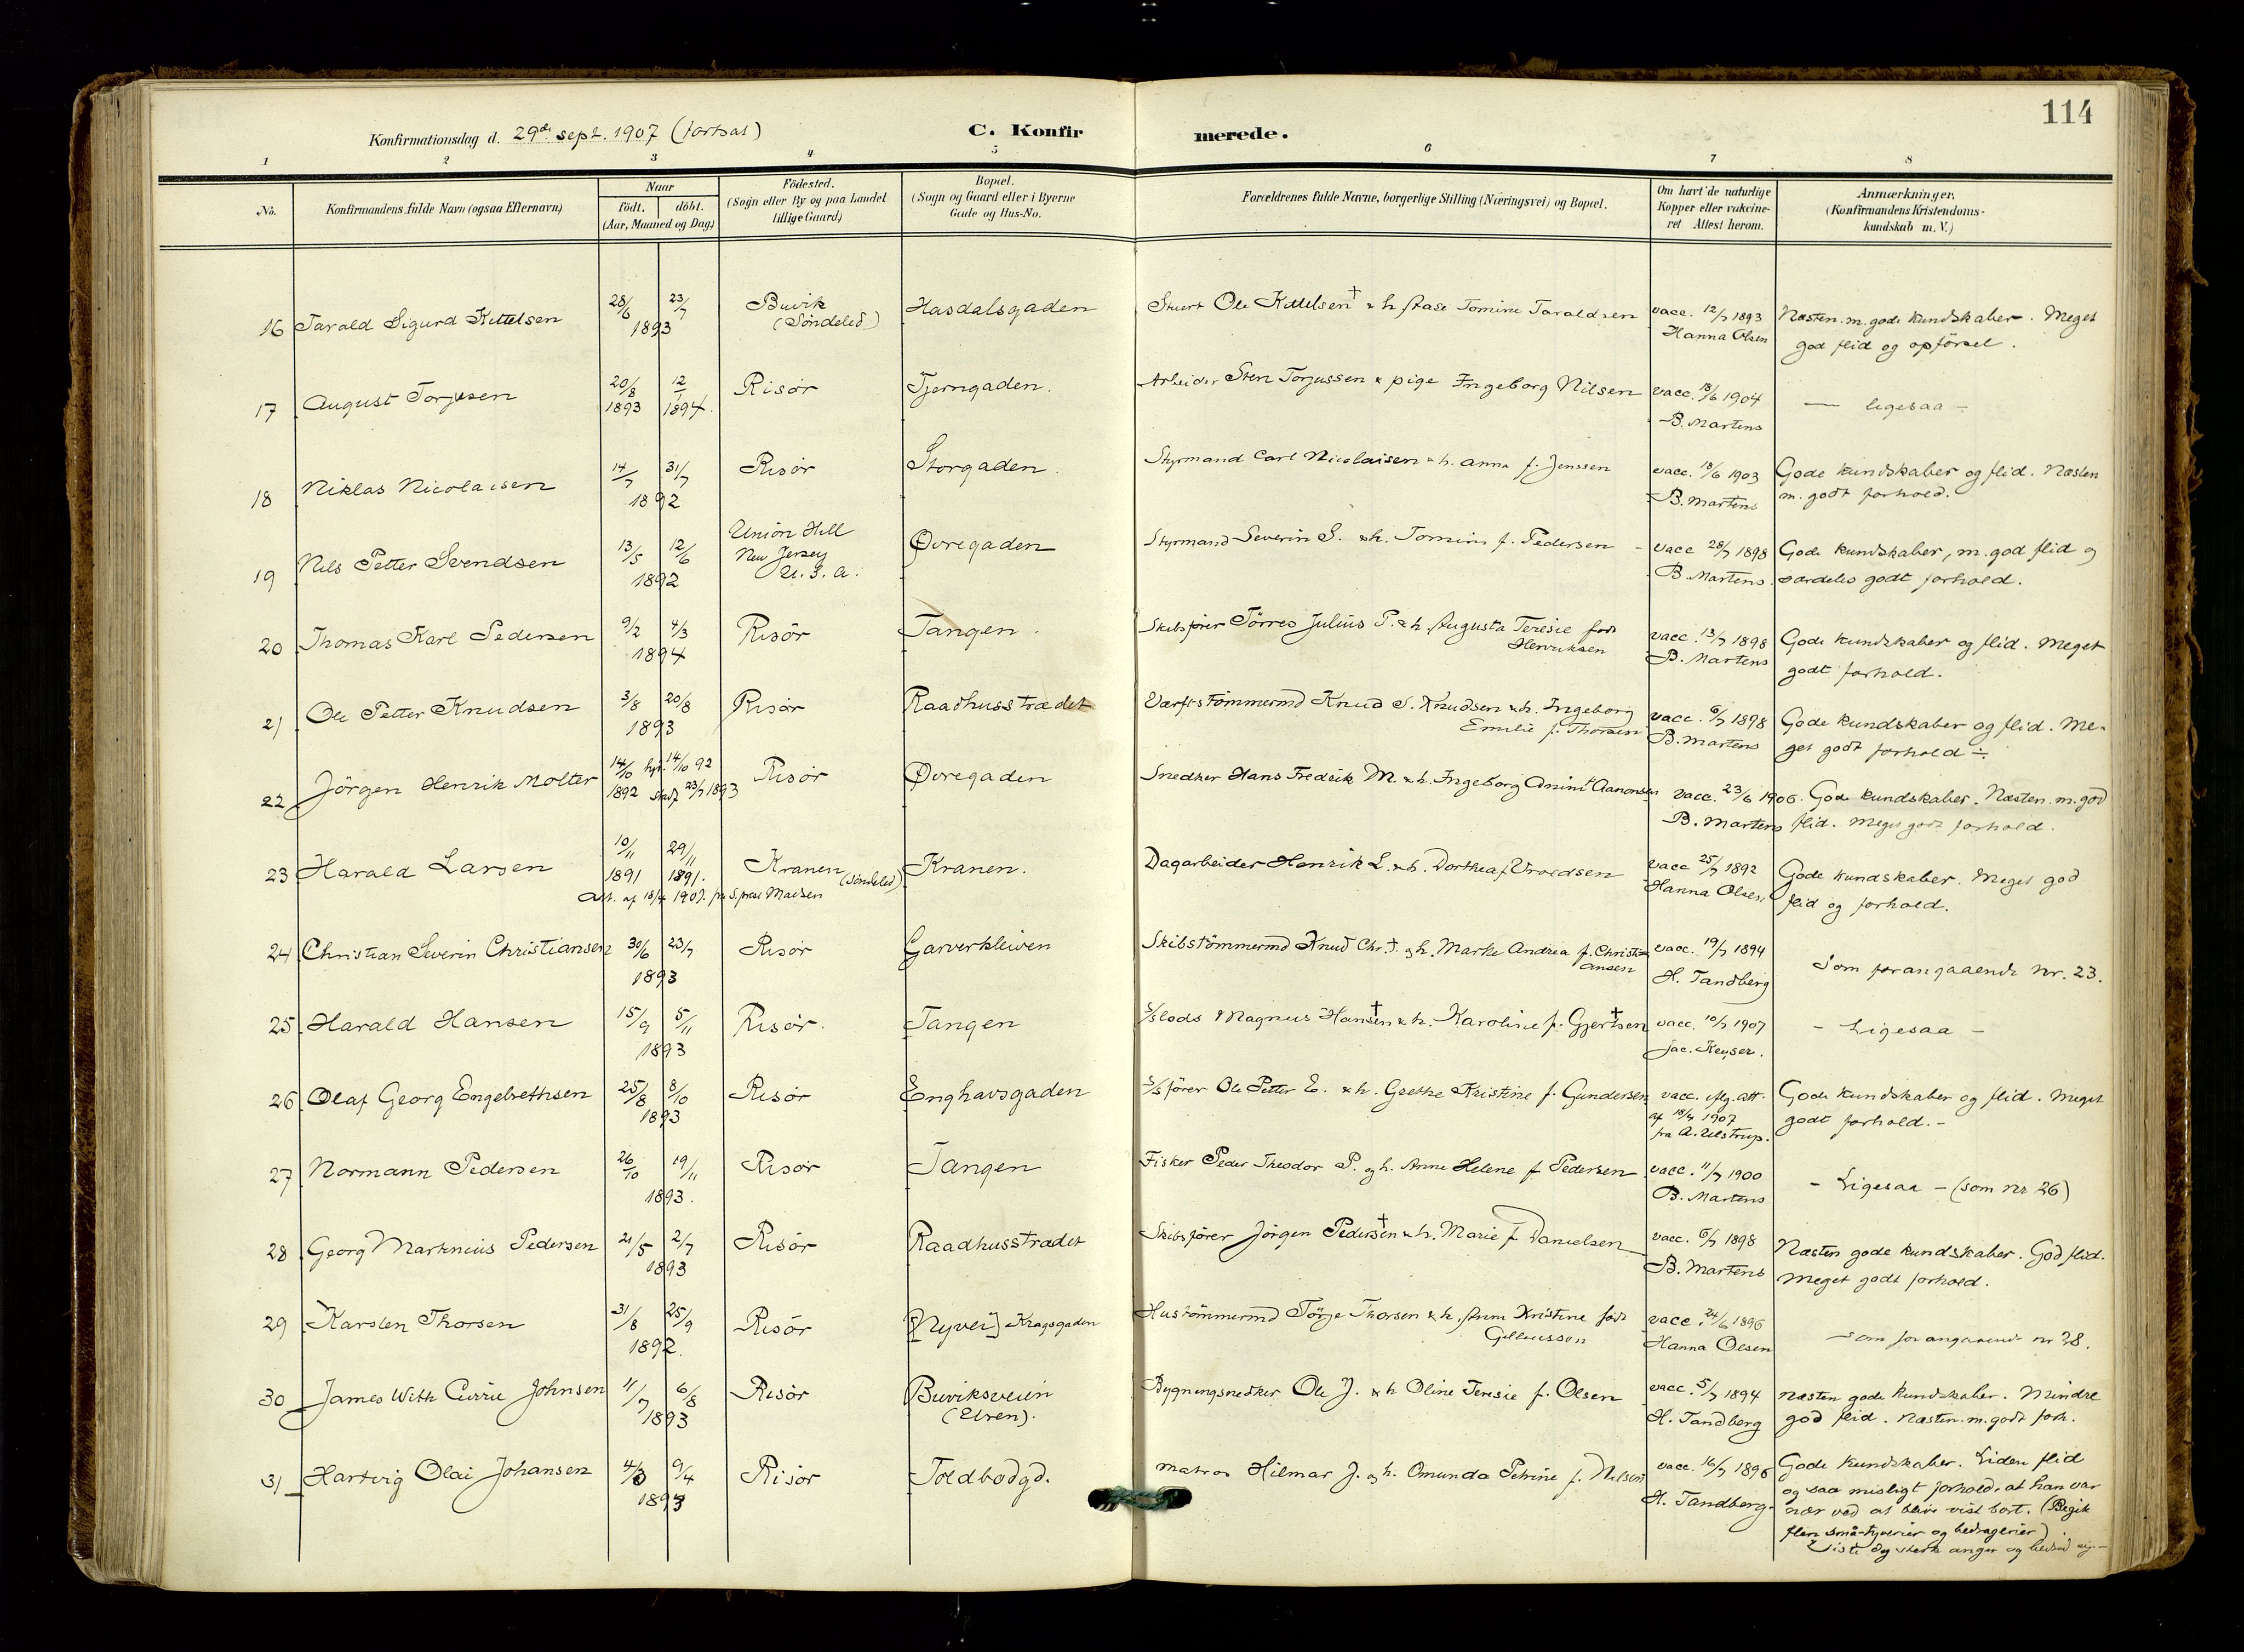 114
Konfirmationsdag d. 29de sept. 1907 (fortsat) C. Konfirmerede.
1 2 3 4 5 6 7 8
No. Konfirmandens fulde Navn (ogsaa Efternavn) Naar födt. döbt. (Aar, Maaned og Dag) Födested. (Sogn eller By og paa Landet tillige Gaard) Bopæl. (Sogn og Gaard eller i Byerne Gade og Hus-No. Forældrenes fulde Navne, borgerlige Stilling (Næringsvei) og Bopæl. Om havt de naturlige Kopper eller vakcineret Attest herom. Anmærkninger, (Konfirmandens Kristendomskundskab m. V.)
16 Tarald Sigurd Kittelsen 28/6 23/7 1893 Buvik (Søndeled) Hasdalsgaden Stuert Ole Kittelsen † & h. Aase Tomine Taraldsen vacc. 12/7 1893 Hanna Olsen Næsten m. gode kundskaber. Meget
god flid og opførsel.
17 August Torjusen 20/8 1893 12/1 1894. Risør Tjerngaden. Arbeider Sten Torjussen & pige Ingeborg Nilsen vacc. 18/6 1904 B. Martens — ligesaa —
18 Niklas Nicolaisen 14/7 31/7 1892 Risør Storgaden. Styrmand Carl Nicolaisen & h. Anna f. Jenssen vacc. 18/6 1903 B. Martens Gode kundskaber og flid. Næsten
m. godt forhold.
19 Nils Petter Svendsen 13/5 12/6 1892 Union Hill New Jersey U. S. A. Øvregaden Styrmand Severin S. & h. Tomine f. Pedersen vacc 28/7 1898 B. Martens Gode kundskaber, m. god flid og
særdeles godt forhold.
20 Thomas Karl Pedersen 9/2 4/3 1894 Risør Tangen. Skibsfører Tørres Julius P. & h. Augusta Teresie født
Henriksen vacc. 13/7 1898 B. Martens Gode kundskaber og flid. Meget
godt forhold.
21 Ole Petter Knudsen 3/8 20/8 1893 Risør Raadhusstrædet Værftstømmermd Knud S. Knudsen & h. Ingeborg
Emilie f. Thorsen vacc. 6/7 1898 B. Martens Gode kundskaber og flid. Me-
get godt forhold ÷
22 Jörgen Henrik Molter 14/10 1892 hjd. 14/10 92 stadf. 23/7 1893 Risør Øvregaden Snedker Hans Fredrik M. & h. Ingeborg Aanonsen vacc. 23/6 1906. B. Martens Gode kundskaber. Næsten m. god
flid. Meget godt forhold.
23 Harald Larsen 10/11 1891 29/11 1891. Kranen (Søndeled) Kranen. Dagarbeider Henrik L. & h. Dorthea f. Vroldsen vacc 25/7 1892 Hanna Olsen Gode kundskaber. Meget god
flid og forhold.
Att. af 1907.
24 Christian Severin Christiansen 30/6 23/7 1893 Risør Garverkleiven Skibstömmermd Knud Chr. † og h. Marthe Andrea f. Christi-
ansen vacc. 19/7 1894 H. Tandberg Som forangaaende nr. 23.
25 Harald Hansen 15/9 5/11 1893 Risør. Tangen S/slods Magnus Hansen † & h. Karoline f. Gjertsen † vacc. 10/7 1907 Jac. Keyser. - Ligesaa -
26 Olaf Georg Engebrethsen 25/8 8/10 1893 Risør Enghavsgaden S/sfører Ole Petter E. & h. Grethe Kristine f. Gundersen vacc. iflg. att. af 1907 fra A. Ulstrup. Gode kundskaber og flid. Meget
godt forhold. -
27 Normann Pedersen 26/10 19/11 1893. Risør Tangen Fisker Peder Theodor P. og h. Anne Helene f. Pedersen vacc. 11/7 1900 B. Martens - Ligesaa - (som nr 26)
28 Georg Martinius Pedersen 21/5 2/7 1893 Risør Raadhusstrædet Skibsfører Jørgen Pedersen † & h. Marie f Danielsen vacc. 6/7 1898 B. Martens Næsten gode kundskaber. God flid.
Meget godt forhold.
29 Karsten Thorsen 31/8 25/9 1892. Risør [Nyvei] Kragsgaden Hustömmermd Törje Thorsen & h. Anne Kristine født
vacc. 24/6 1896 Hanna Olsen - som forangaaende nr 28.
30 James With Currie Johnsen 11/7 6/8 1893 Risør Buviksveien (Elven). Bygningsnedker Ole J. & h Oline Teresie f. Olsen vacc. 5/7 1894 H. Tandberg Næsten gode kundskaber. Mindre
god flid. Næsten m. godt forh.
31 Hartvig Olai Johansen 4/3 9/4 1893 Risør Toldbodgd. Matros Hilmar J. og h. Omunda Petrine f. Nilsen vacc. 16/7 1896 H. Tandberg. Gode kundskaber. Liden flid
og saa misligt forhold, at han var
nær ved at blive vist bort. (Begik
flere små-tyverier og bedragerier).
Viste dog sterk anger og bedred sig. -